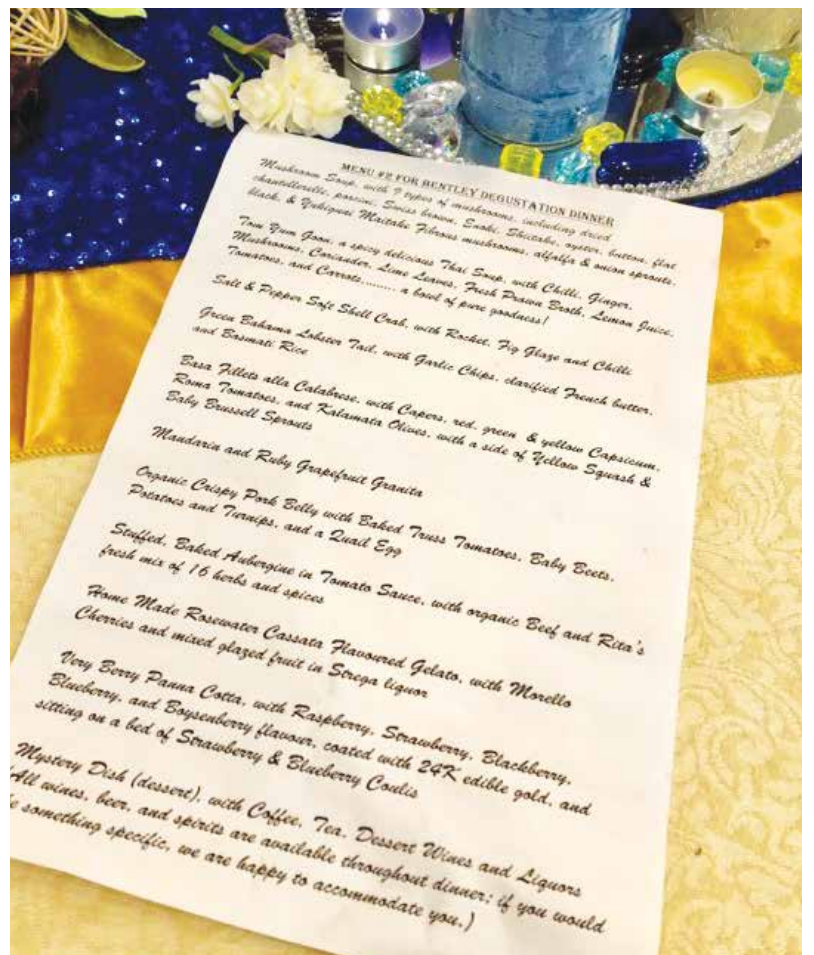 MENU #2 FOR BENTLEY DEGUSTATION DINNER
Mushroom Soup, with 9 types of mushrooms, including dried
chantillerelle, porcini, Swiss brown, Enoki, Shiitake, oyster, button, flat
black, & Yukiguni Maitake Fibrous mushrooms, alfalfa & onion sprouts.
Tom Yum Goon, a spicy delicious Thai Soup, with Chilli, Ginger,
Mushrooms, Coriander, Lime Leaves, Fresh Prawn Broth, Lemon Juice,
Tomatoes, and Carrots......... a bowl of pure goodness!
Salt & Pepper Soft Shell Crab, with Rocket, Fig Glaze and Chilli
Green Bahama Lobster Tail, with Garlic Chips, clarified French butter,
and Basmati Rice
Basa Fillets alla Calabrese, with Capers, red, green & yellow Capsicum,
Roma Tomatoes, and Kalamata Olives, with a side of Yellow Squash &
Baby Brussell Sprouts
Mandarin and Ruby Grapifruit Granita
Organic Crispy Pork Belly with Baked Truss Tomatoes, Baby Beets,
Potatoes and Turnips, and a Quail Egg
Stuffed, Baked Aubergine in Tomato Sauce, with organic Beef and Rita's
fresh mix of 16 herbs and spices
Home Made Rosewater Cassata Flavoured Gelato, with Morello
Cherries and mixed glazed fruit in Strega liquor
Very Berry Panna Cotta, with Raspberry, Strawberry, Blackberry,
Blueberry, and Boysenberry flavour, coated with 24K edible gold, and
sitting on a bed of Strawberry & Blueberry Coulis
Mystery Dish (dessert), with Coffee, Tea, Dessert Wines and Liquors
(All wines, beer, and spirits are available throughout dinner; if you would
something specific, we are happy to accommodate you.)